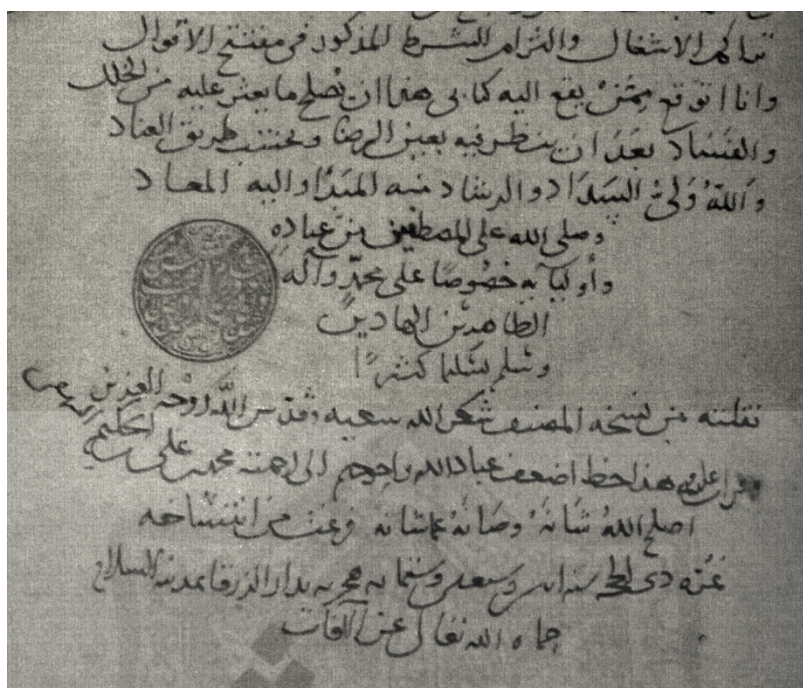 تراكم الاشغال والتزام الشرط المذكور فى مفتتح الاقوال
وانا اتوقع ممن يقع اليه كتابى هذا ان يصلح ما يعثر عليه من الخلل
والفساد بعد ان ينظر فيه بعين الرضا ويجتنب طريق العناد
والله ولى السداد والرشاد منه المبدا واليه المعاد
وصلى الله على المصطفين من عباده
وأوليآيه خصوصا على محمد وآله
الطاهرين الهادين
وسلم تسليما كثيرا
نقلته من نسخه المصنف شكر الله سعيه وقدس الله روحه العزيز
هذا خط اضعف عباد الله واحوجهم الى رحمته محمد بن على
اصلح الله شانه وصانه عما شانه فرغت من انتساخه
غره ذى الحجه سنه وسبعين وستمايه هجريه بدار الزرقا بمدينه السلام
حماه الله تعالى عن الآفات